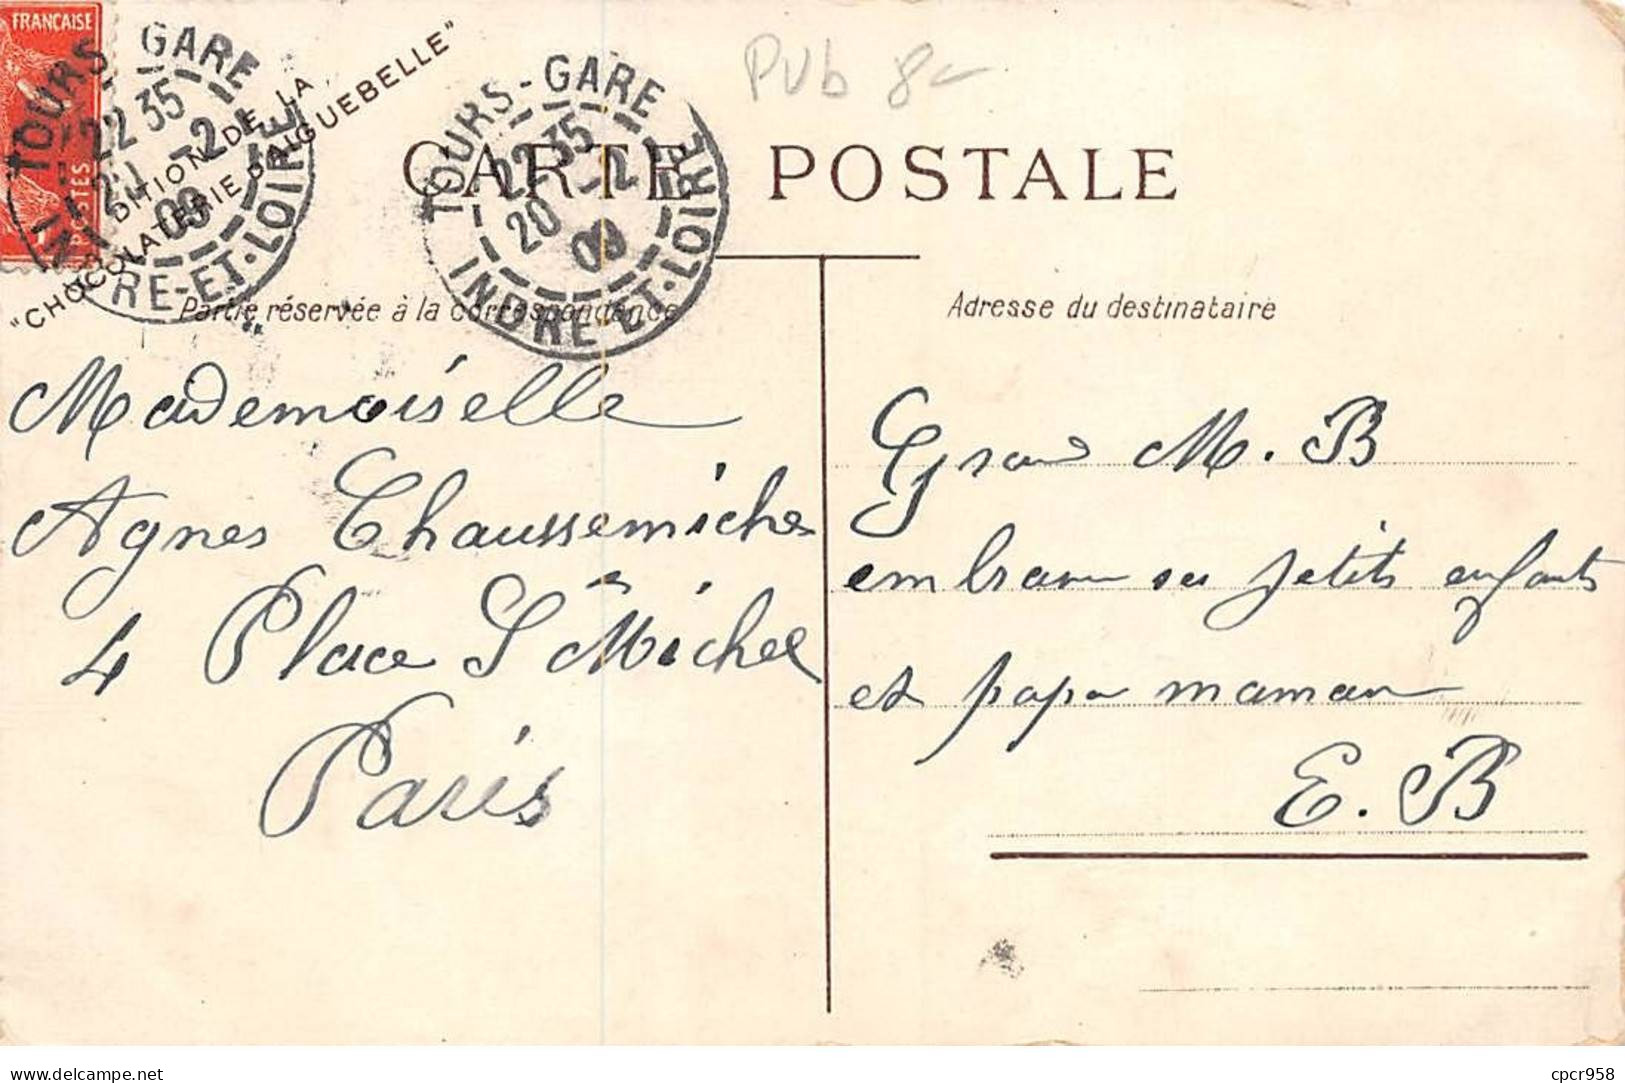 FRANÇAISE
POSTES
TOURS-GARE
22 35
20 -2
09
INDRE-ET-LOIRE
ÉDITION DE LA
"CHOCOLATERIE D'AIGUEBELLE"
TOURS-GARE
22 35
20 -2
09
INDRE-ET-LOIRE
Pub 8-
CARTE POSTALE
Partie réservée à la correspondance
Adresse du destinataire
Mademoiselle
Agnes Chaussemiche
4 Place St Michel
Paris
Grand M. B
embrasse ses petits enfants
et papa maman
E. B
cpcr958